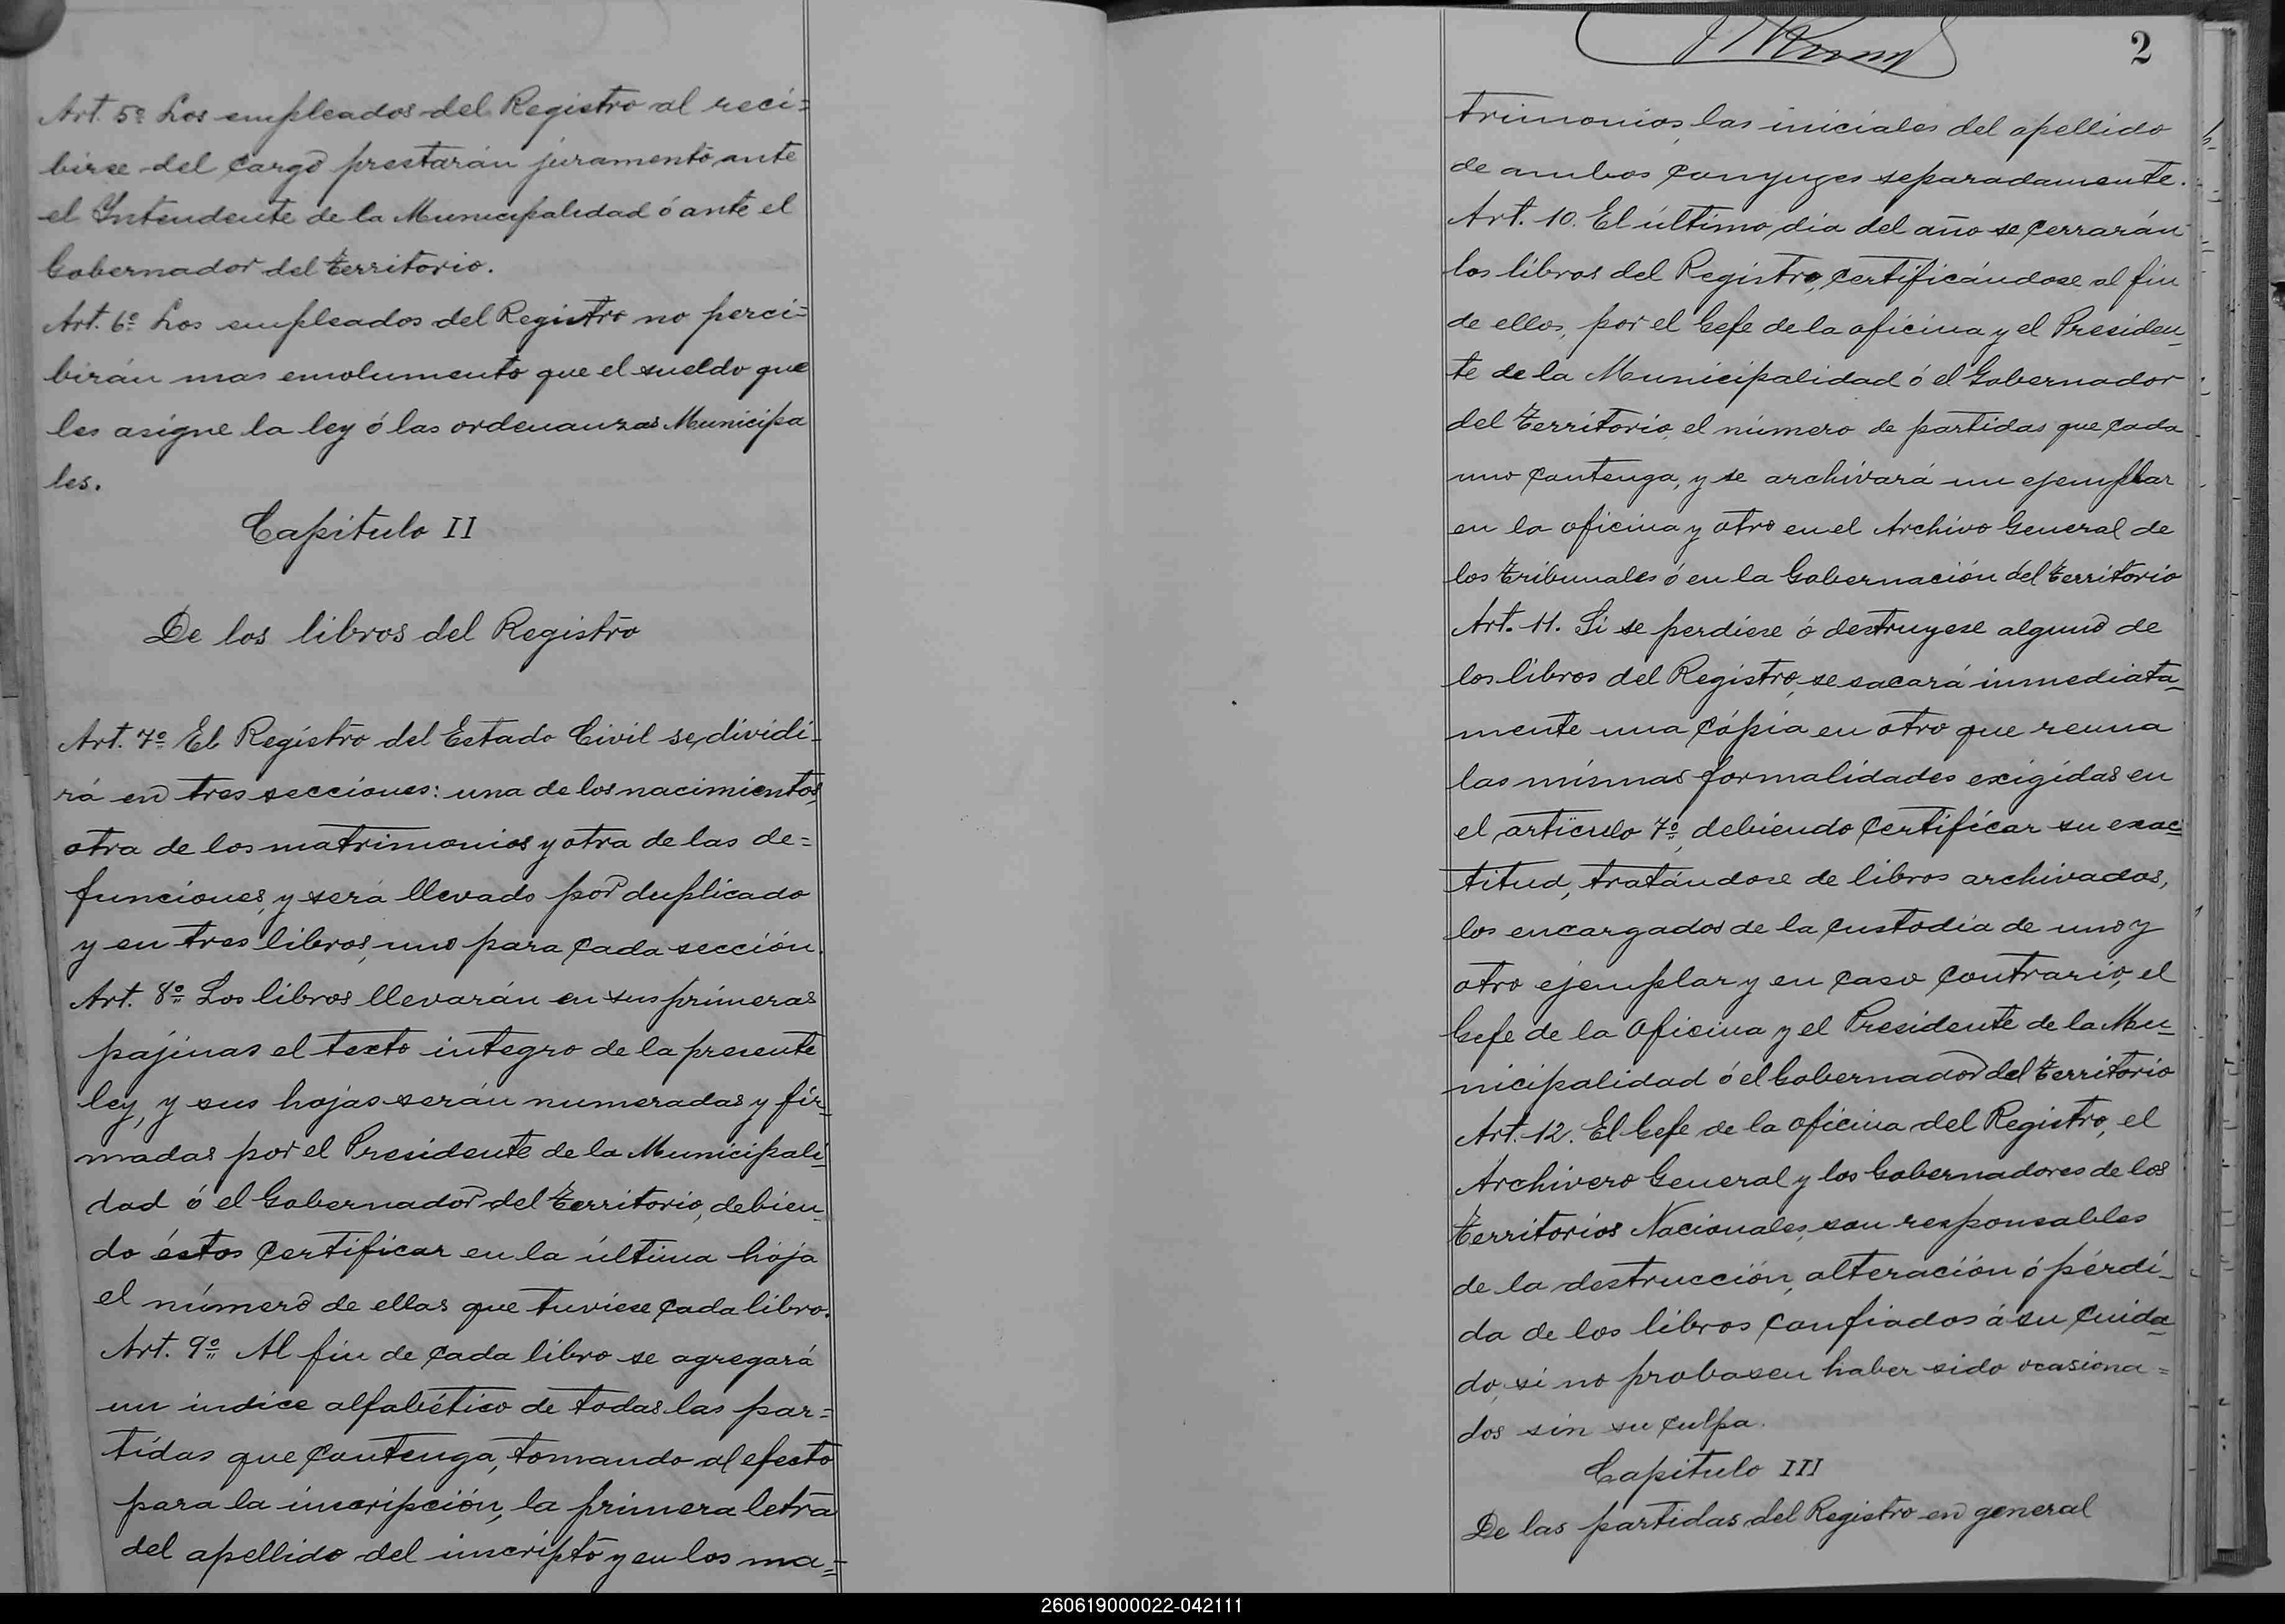 Art. 5º Los empleados del Registro al reci=
birse del cargo prestarán juramento ante
el Intendente de la Municipalidad ó ante el
Gobernador del Territorio.
Art. 6º Los empleados del Registro no perci=
birán mas emolumento que el sueldo que
les asigne la ley ó las ordenanzas Municipa
les.
Capitulo II
De los libros del Registro
Art. 7º El Registro del Estado Civil se dividi_
rá en tres secciones: una de los nacimientos,
otra de los matrimonios y otra de las de=
funciones, y será llevado por duplicado
y en tres libros, uno para cada sección.
Art. 8º Los libros llevarán en sus primeras
pajinas el texto integro de la presente
ley, y sus hojas serán numeradas y fir_
madas por el Presidente de la Municipali_
dad ó el Gobernador del Territorio, debien_
do éstos certificar en la última hoja
el número de ellas que tuviese cada libro.
Art. 9º Al fin de cada libro se agregará
un indice alfabético de todas las par=
tidas que contenga, tomando al efecto
para la inscripción, la primera letra
del apellido del inscripto y en los ma=
2
trimonios, las iniciales del apellido
de ambos conyuges separadamente.
Art. 10. El último dia del año se cerrarán
los libros del Registro, certificándose al fin
de ellos, por el Gefe de la oficina y el Presiden_
te de la Municipalidad ó el Gobernador
del Territorio, el número de partidas que cada
uno contenga, y se archivará un ejemplar
en la oficina y otro en el Archivo General de
los Tribunales ó en la Gobernación del Territorio
Art. 11. Si se perdiese ó destruyese alguno de
los libros del Registro, se sacará inmediata_
mente una cópia en otro que reuna
las mismas formalidades exigidas en
el artículo 7º, debiendo certificar su exac_
titud, tratándose de libros archivados,
los encargados de la custodia de uno y
otro ejemplar y en caso contrario, el
Gefe de la Oficina y el Presidente de la Mu_
nicipalidad ó el Gobernador del Territorio
Art. 12. El Gefe de la oficina del Registro, el
Archivero General y los Gobernadores de los
Territorios Nacionales, son responsables
de la destrucción, alteración ó pérdi_
da de los libros confiados á su cuida_
do, si no probasen haber sido ocasiona=
dos sin su culpa.
Capitulo III
De las partidas del Registro en general
260619000022-042111